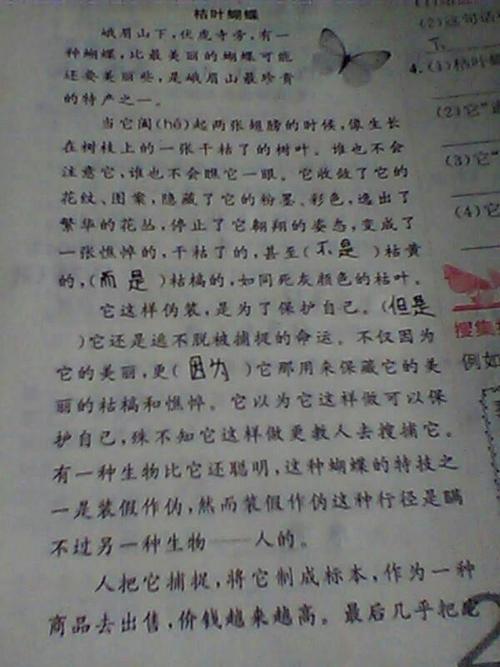 枯叶蝴蝶
峨眉山下，伏虎寺旁，有一
种蝴蝶，比最美丽的蝴蝶可能
还要美丽些，是峨眉山最珍贵
的特产之一。
当它阖(hé)起两张翅膀的时候，像生长
在树枝上的一张干枯了的树叶。谁也不会
注意它，谁也不会瞧它一眼。它收敛了它的
花纹、图案，隐藏了它的粉墨、彩色，逸出了
繁华的花丛，停止了它翱翔的姿态，变成了
一张憔悴的，干枯了的，甚至(不是)枯黄
的，(而是)枯槁的，如同死灰颜色的枯叶。
它这样伪装，是为了保护自己。(但是
)它还是逃不脱被捕捉的命运。不仅因为
它的美丽，更(因为)它那用来保藏它的美
丽的枯槁和憔悴。它以为它这样做可以保
护自己，殊不知它这样做更教人去搜捕它。
有一种生物比它还聪明，这种蝴蝶的特技之
一是装假作伪，然而装假作伪这种行径是瞒
不过另一种生物——人的。
人把它捕捉，将它制成标本，作为一种
商品去出售，价钱越来越高。最后几乎把它
(2)这句话
4.(1)枯叶
(2)它"
(3)它"
(4)它
搜集
例如
2